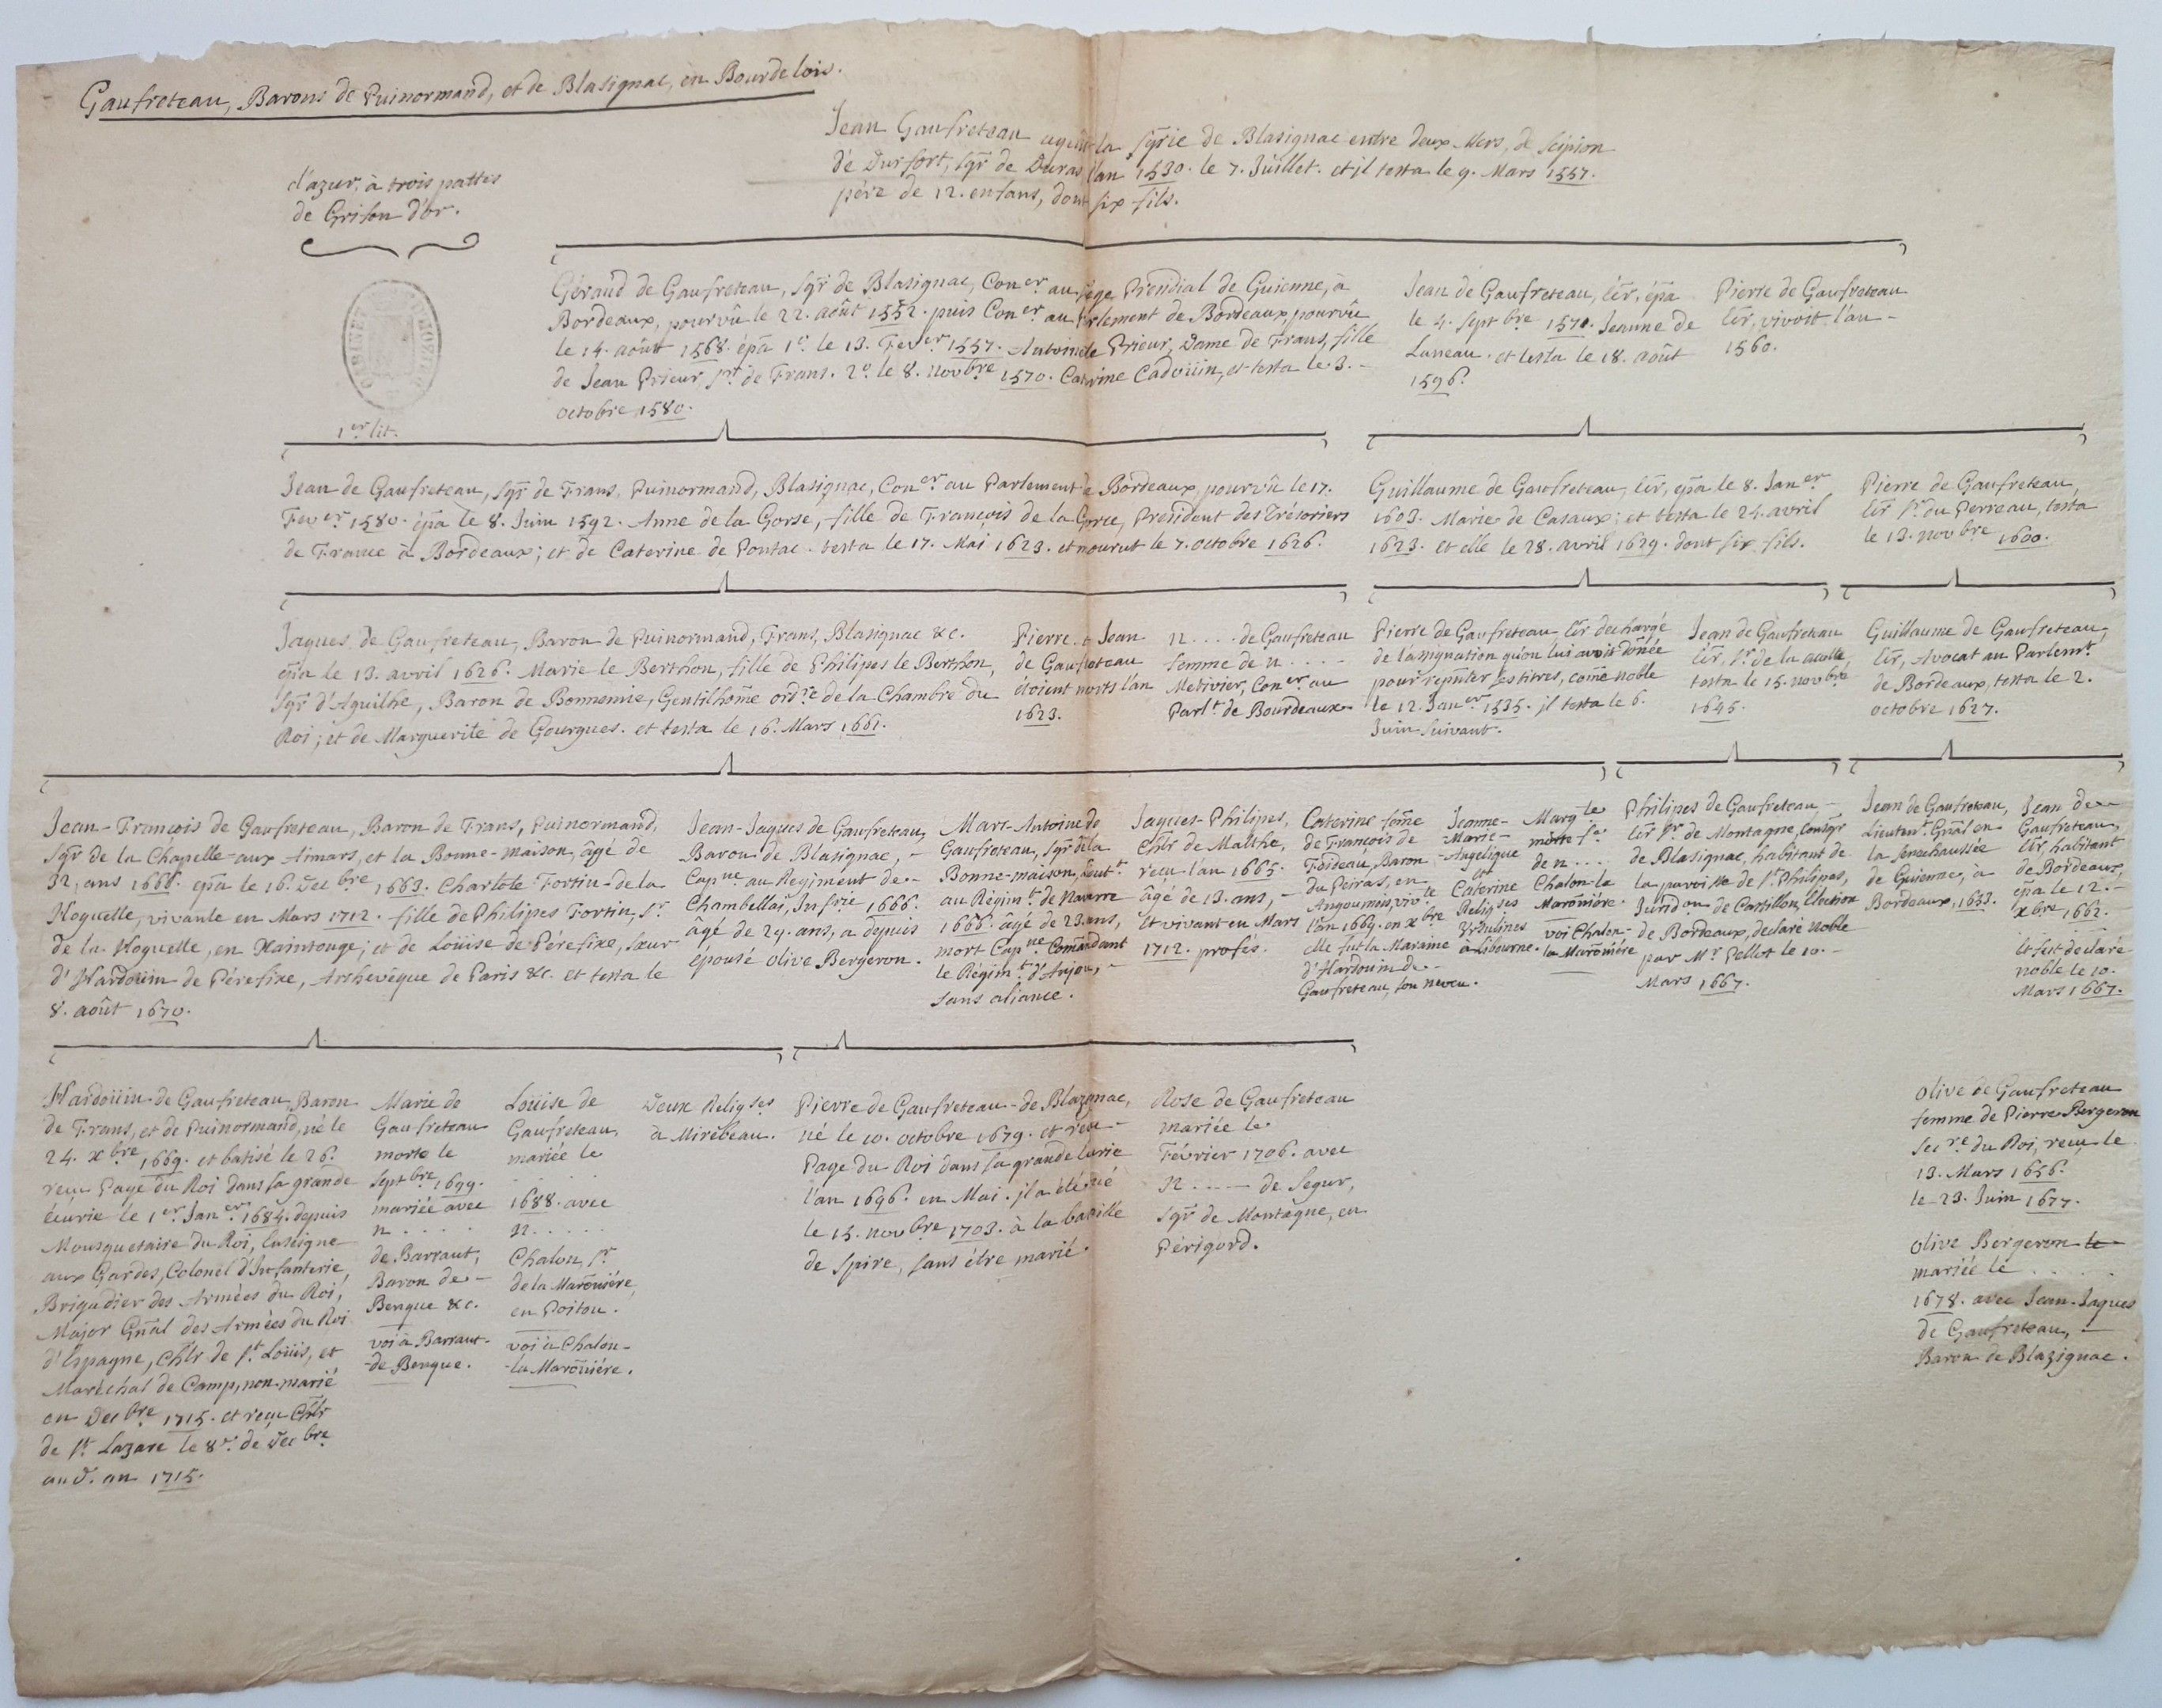 Gaufreteau, Barons de Puinormand, et de Blasignac, en Bourdelois.
d'azur, à trois pattes
de Grifon d'or.
Jean Gaufreteau aquit la sgrie de Blasignac entre deux Mers, de Scipion
de Durfort, sgr de Duras l'an 1530. le 7. Juillet. et il testa le 9. Mars 1557.
pére de 12. enfans, dont six fils.
Géraud de Gaufreteau, sgr de Blasignac, Coner au siége Presidial de Guienne, à
Bordeaux, pourvû le 22. août 1552. puis Coner au Parlement de Bordeaux, pourvû
le 14. août 1568. épa 1º. le 13. Fever 1557. Antoinete Prieur, Dame de Frans, fille
de Jean Prieur, sr de Frans. 2º. le 8. novbre 1570. Caterine Cadoüin, et testa le 3.
octobre 1580.
Jean de Gaufreteau, ér, épa
le 4. septbre 1571. Jeanne de
Luneau. et testa le 18. août
1596.
Pierre de Gaufreteau
ér, vivoit l'an
1560.
1er lit.
Jean de Gaufreteau, sgr de Frans, Puinormand, Blasignac, Coner au Parlement de Bordeaux, pourvû le 17.
Fever 1580. épa le 8. Juin 1592. Anne de la Gorse, fille de François de la Gorce, President des Trésoriers
de France à Bordeaux; et de Caterine de Pontac. testa le 17. Mai 1623. et mourut le 7. octobre 1626.
Guillaume de Gaufreteau, ér, épa le 8. Janer
1603. Marie de Casaux; et testa le 24. avril
1623. et elle le 28. avril 1629. dont six fils.
Pierre de Gaufreteau,
ér sr du Perreau, testa
le 13. novbre 1600.
Jaques de Gaufreteau, Baron de Puinormand, Frans, Blasignac &c.
épa le 13. avril 1626. Marie le Berthon, fille de Philipes le Berthon,
sgr d'Aguilhe, Baron de Bonnemie, Gentilhome ordre de la Chambre du
Roi; et de Marguerite de Gourgues. et testa le 16. Mars 1661.
Pierre & Jean
de Gaufreteau
étoient morts l'an
1623.
n.... de Gaufreteau
femme de n....
Metivier, Coner au
Parlt de Bourdeaux
Pierre de Gaufreteau, ér dechargé
de l'assignation qu'on lui avoit donée
pour représenter ses titres, come noble
le 12. Janer 1535. il testa le 6.
Juin suivant.
Jean de Gaufreteau
ér, sr de la
testa le 15. novbre
1645.
Guillaume de Gaufreteau,
ér, Avocat au Parlemt
de Bordeaux, testa le 2.
octobre 1627.
Jean-François de Gaufreteau, Baron de Frans, Puinormand,
sgr de la Chapelle-aux Aimars, et la Bonne-maison, âgé de
32, ans 1666. épa le 16. Decbre 1663. Charlote Fortin-de la
Hoguette, vivante en Mars 1712. fille de Philipes Fortin, sr
de la Hoguette, en Xaintonge; et de Loüise de Péréfixe, sœur
d'Hardoüin de Pérefixe, Archevêque de Paris &c. et testa le
8. août 1670.
Jean-Jaques de Gaufreteau,
Baron de Blasignac,
Capne au Regiment de
Chambellai, Infrie 1666.
âgé de 29. ans, a depuis
épousé Olive Bergeron.
Marc-Antoine de
Gaufreteau, sgr de la
Bonne-maison, Lieutt
au Régimt de Navarre
1666. âgé de 23 ans,
mort Capne Comandant
le Régimt d'Anjou,
sans aliance.
Jaques-Philipes,
Chlr de Malthe,
reçu l'an 1665.
âgé de 13. ans,
et vivant en Mars
1712. profés.
Caterine fome
de François de
Feideau, Baron
du Peiras, en
Angoumois, vivte
l'an 1669. en xbre
elle fut la Maraine
d'Hardouin de
Gaufreteau, son neveu.
Jeanne-
Marie-
Angelique
et
Caterine
Religses
Ursulines
à Libourne.
Margte
morte fe
de n....
Chalon-la
Maroniére.
voi Chalon-
la Maroniére
Philipes de Gaufreteau
ér sr de Montagne, Consgr
de Blasignac, habitant de
la paroisse de St Philipes,
Juridon de Castillon, Election
de Bordeaux, declaré noble
par Mr Pellot le 10.
Mars 1667.
Jean de Gaufreteau,
Lieutent Gnal en
la senechaussée
de Guienne, à
Bordeaux, 1653.
Jean de
Gaufreteau,
ér, habitant
de Bordeaux,
épa le 12.
xbre 1662.
et fut declaré
noble le 10.
Mars 1667.
Hardoüin de Gaufreteau Baron
de Frans, et de Puinormand, né le
24. xbre 1669. et batisé le 26.
reçu Page du Roi dans sa grande
écurie le 1er Janer 1684. depuis
Mousquetaire du Roi, Enseigne
aux Gardes, Colonel d'Infanterie,
Brigadier des Armées du Roi,
Major Gnal des Armées du Roi
d'Espagne, Chlr de St Loüis, et
Maréchal de Camp, non marié
en Decbre 1715. et reçu Chlr
de St Lazare le 8e. de Decbre
aud. an 1715.
Marie de
Gaufreteau
morte le
Septbre 1699.
mariée avec
n....
de Barraut,
Baron de
Benque &c.
voi à Barraut-
de Benque.
Loüise de
Gaufreteau,
mariée le
. . . .
1688. avec
n....
Chalon, sr
de la Maroniére,
en Poitou.
voi à Chalon-
la Maroniére.
Deux Religses
à Mirebeau.
Pierre de Gaufreteau-de Blazignac,
né le 10. octobre 1679. et reçu
Page du Roi dans sa grande écurie
l'an 1696. en Mai. il a été tué
le 15. novbre 1703. à la bataille
de Spire, sans être marié.
Rose de Gaufreteau
mariée le
Février 1706. avec
n.... de Segur,
sgr de Montagne, en
Périgord.
Olive de Gaufreteau
femme de Pierre Bergeron
Secre du Roi, reçu le
13. Mars 1656.
le 23. Juin 1677.
Olive Bergeron le
mariée le ....
1678. avec Jean-Jaques
de Gaufreteau,
Baron de Blazignac.